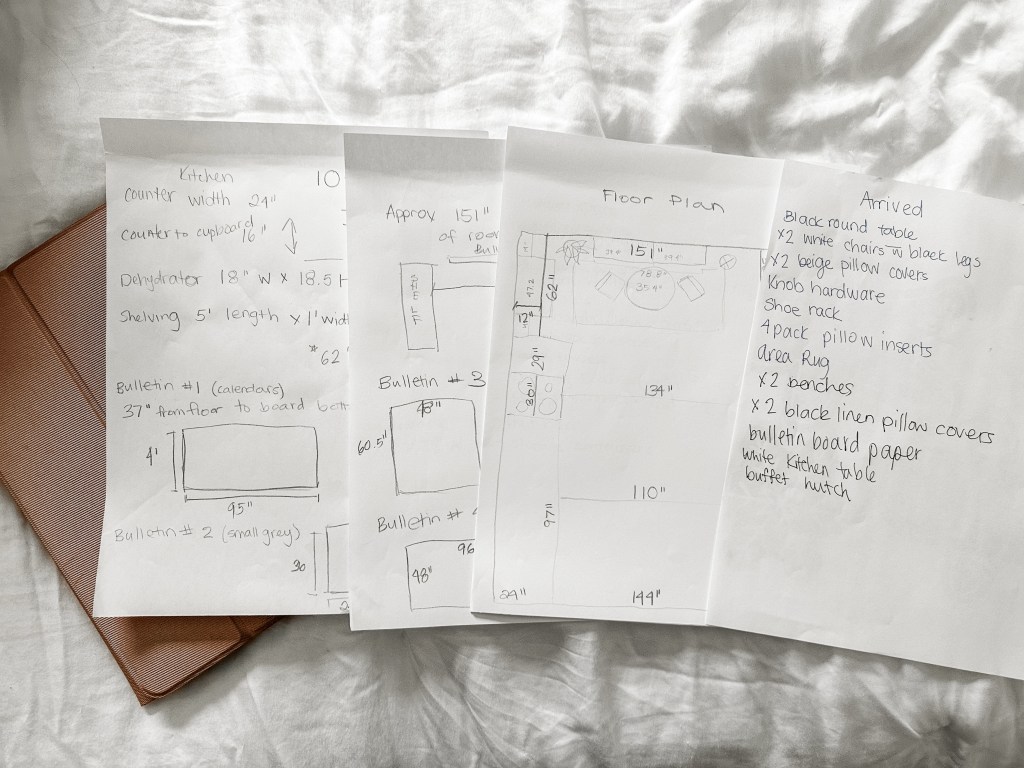 Kitchen
10
counter width 24"
counter to cupboard
16"
Dehydrator 18" W x 18.5 H
Shelving 5' length x 1' widt
* 62
Bulletin #1 (calendars)
37" from floor to board bott
4'
95"
Bulletin # 2 (small grey)
30
Approx 151"
of roo
Bull
Bulletin # 3
48"
60.5"
Bulletin #
96
48"
Floor Plan
151"
47.2
62"
35.4"
12"
29"
30"
134"
110"
97"
24"
144"
Arrived
Black round table
x2 white chairs w black legs
x2 beige pillow covers
Knob hardware
Shoe rack
4 pack pillow inserts
area Rug
x2 benches
x2 black linen pillow covers
bulletin board paper
white Kitchen table
buffet hutch